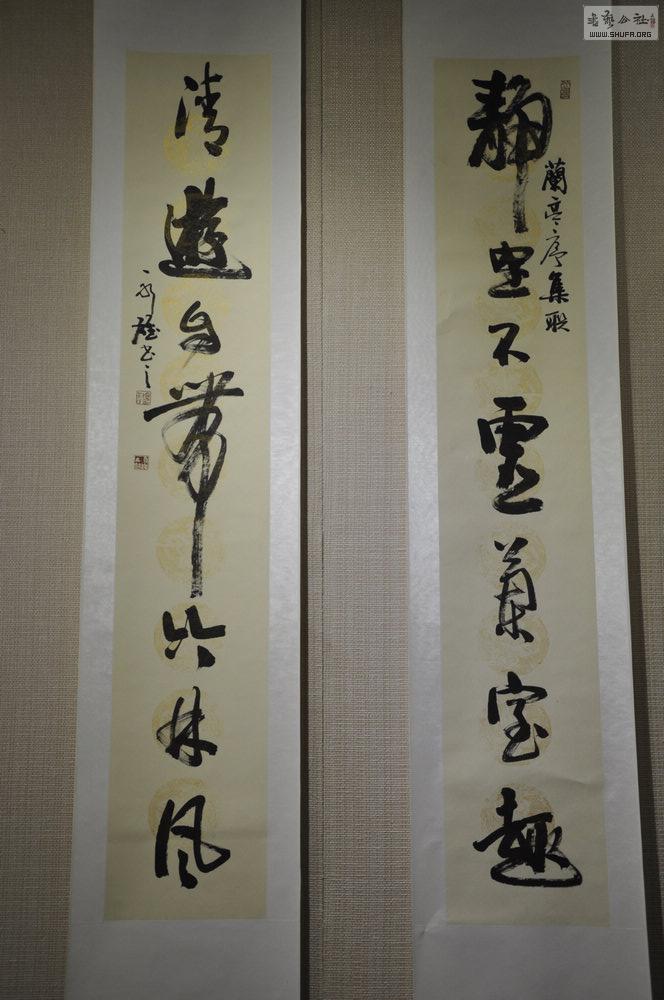 靜坐不虛蘭室趣
蘭亭序集聯
清遊自帶竹林風
書之
書藝公社
WWW.SHUFA.ORG